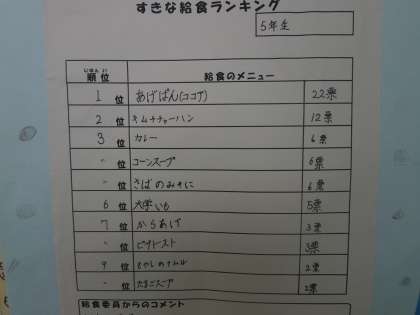 すきな給食ランキング
5年生
順位 給食のメニュー
1位 あげぱん(ココア) 22票
2位 キムチチャーハン 12票
3位 カレー 6票
〃位 コーンスープ 6票
〃位 さばのみそに 6票
6位 大学いも 5票
7位 からあげ 3票
〃位 ピザトースト 3票
9位 もやしのナムル 2票
〃位 たまごスープ 2票
給食委員からのコメント